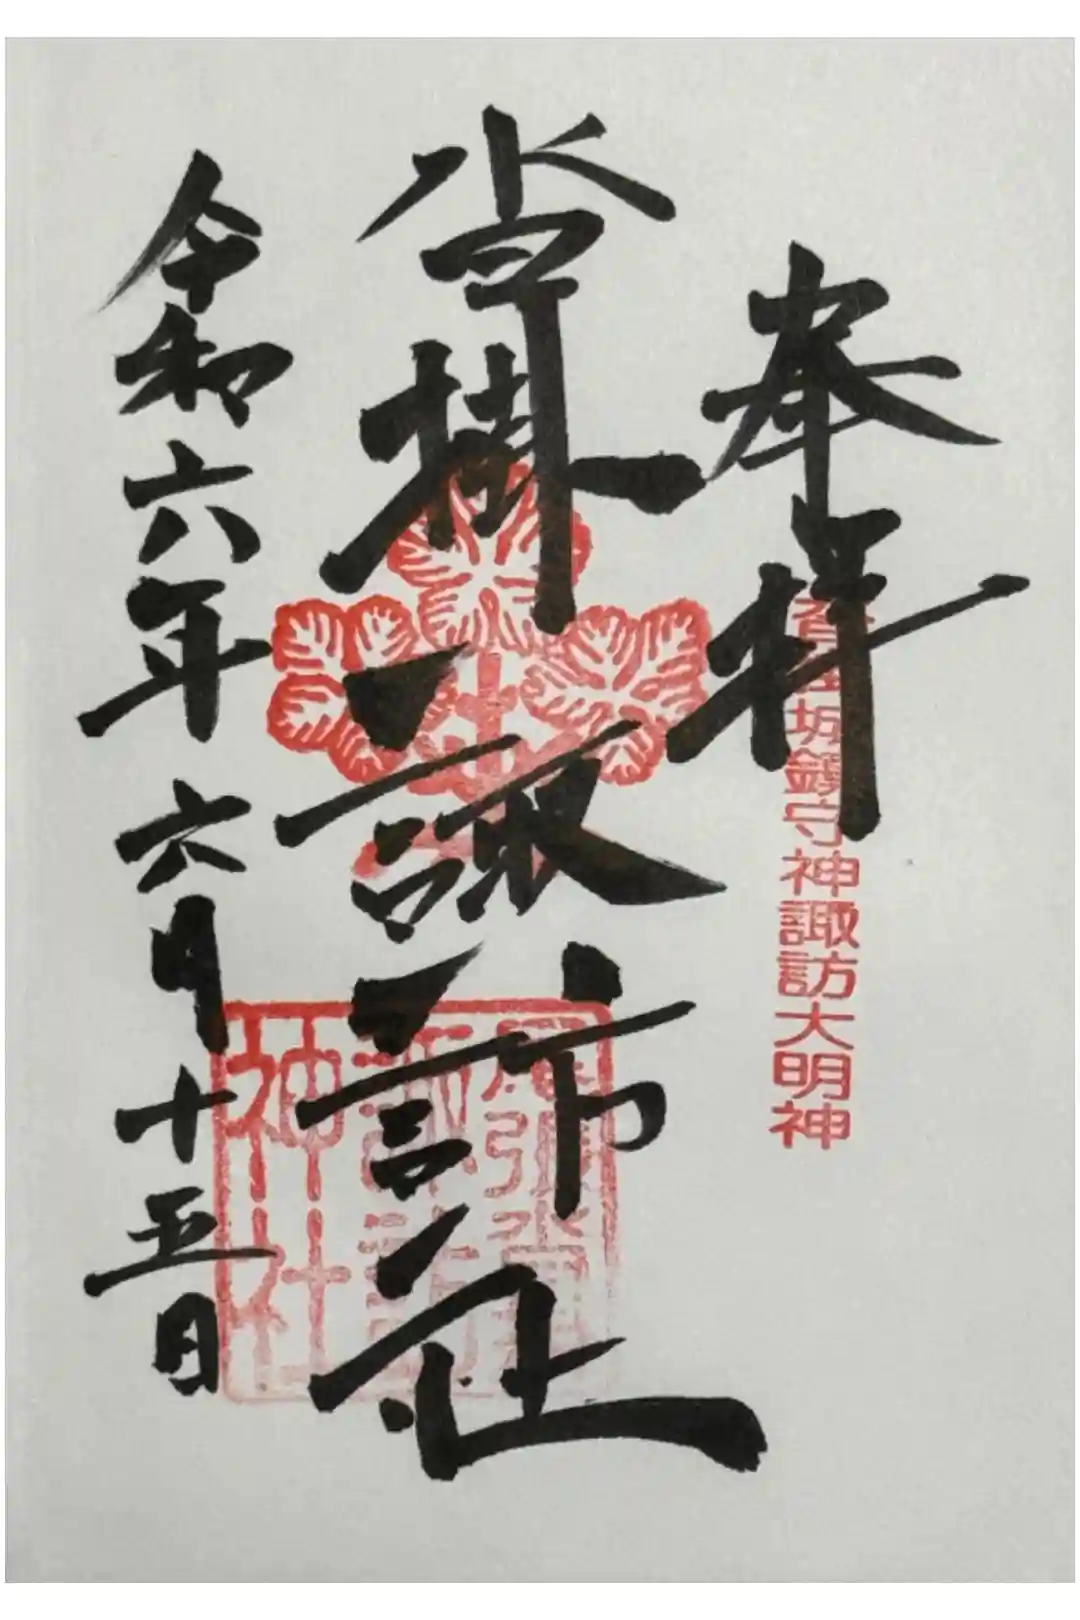 奉拝
沓掛城鎮守神諏訪大明神
沓掛諏訪社
諏訪
神社
令和六年六月十五日